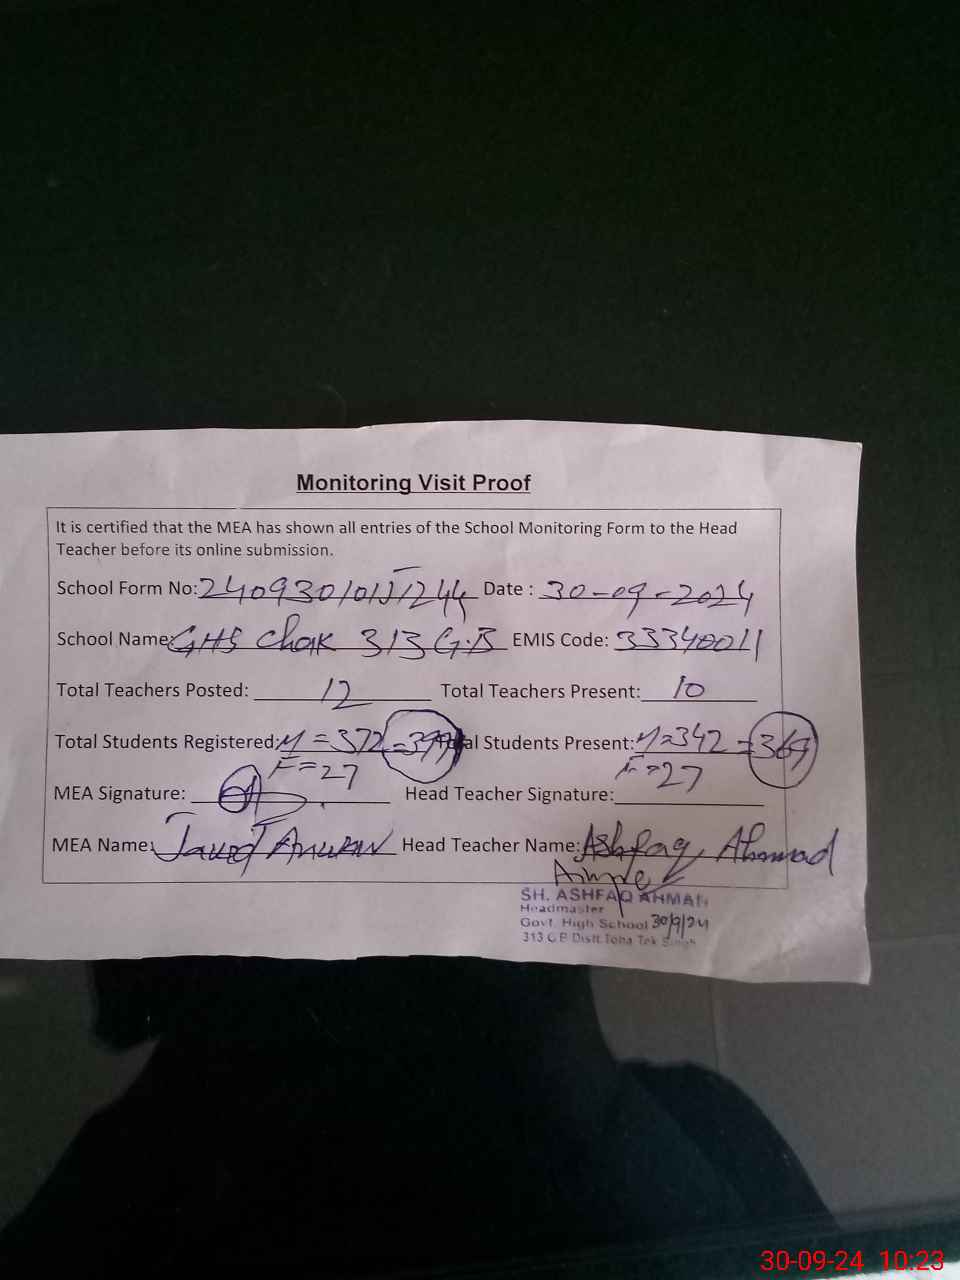 Monitoring Visit Proof
It is certified that the MEA has shown all entries of the School Monitoring Form to the Head
Teacher before its online submission.
School Form No: Date : 30-09-2024
School Name: GHS Chak 313 G.B EMIS Code: 33340011
Total Teachers Posted: 12 Total Teachers Present: 10
Total Students Registered: M = 372 = 399 Total Students Present: M = 342 = 369
F = 27 F = 27
MEA Signature: Head Teacher Signature:
MEA Name: Head Teacher Name: Ashfaq Ahmad
SH. ASHFAQ AHMAD
Headmaster
Govt. High School 30/9/24
313 GB Distt. Toba Tek Singh
30-09-24 10:23